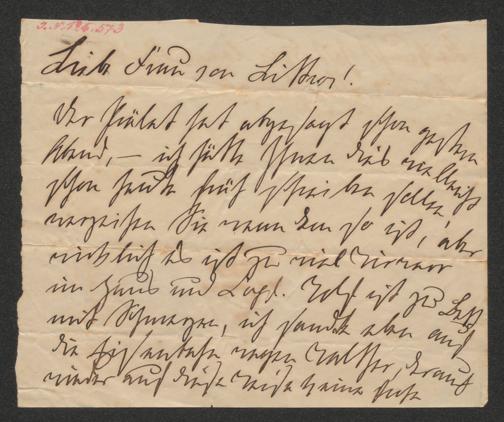 J.N. 126.573
Liebe Frau von Littrow!
Der Prälat hat abgesagt schon gestern
Abend, – ich hätte Ihnen dies vielleicht
schon heute früh schreiben sollen,
verzeihen Sie wenn dem so ist, aber
wirklich es ist zu viel Wirrwar
im Haus und Kopf. ist zu Bett
mit Schmerzen, ich sandte eben auf
die Eisenbahn wegen Walther, darauf
wieder auf diese Weise keine